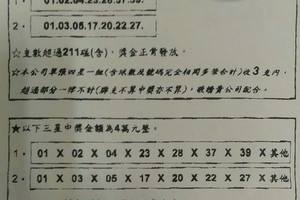 1· 01.02.04.23.28.37.39.
2· 01.03.05.17.20.22.27.
☆支數超過211碰(含),獎金正常發放。
☆本公司單張四星一組(含球數及號碼完全相同多簽合計)收3支內,
超過部分一律不計(碰支不算中獎亦不算),敬請貴公司配合。
★以下三星中獎金額為4萬元整。
1· 01 X 02 X 04 X 23 X 28 X 37 X 39 X 其他
2· 01 X 03 X 05 X 17 X 20 X 22 X 27 X 其他